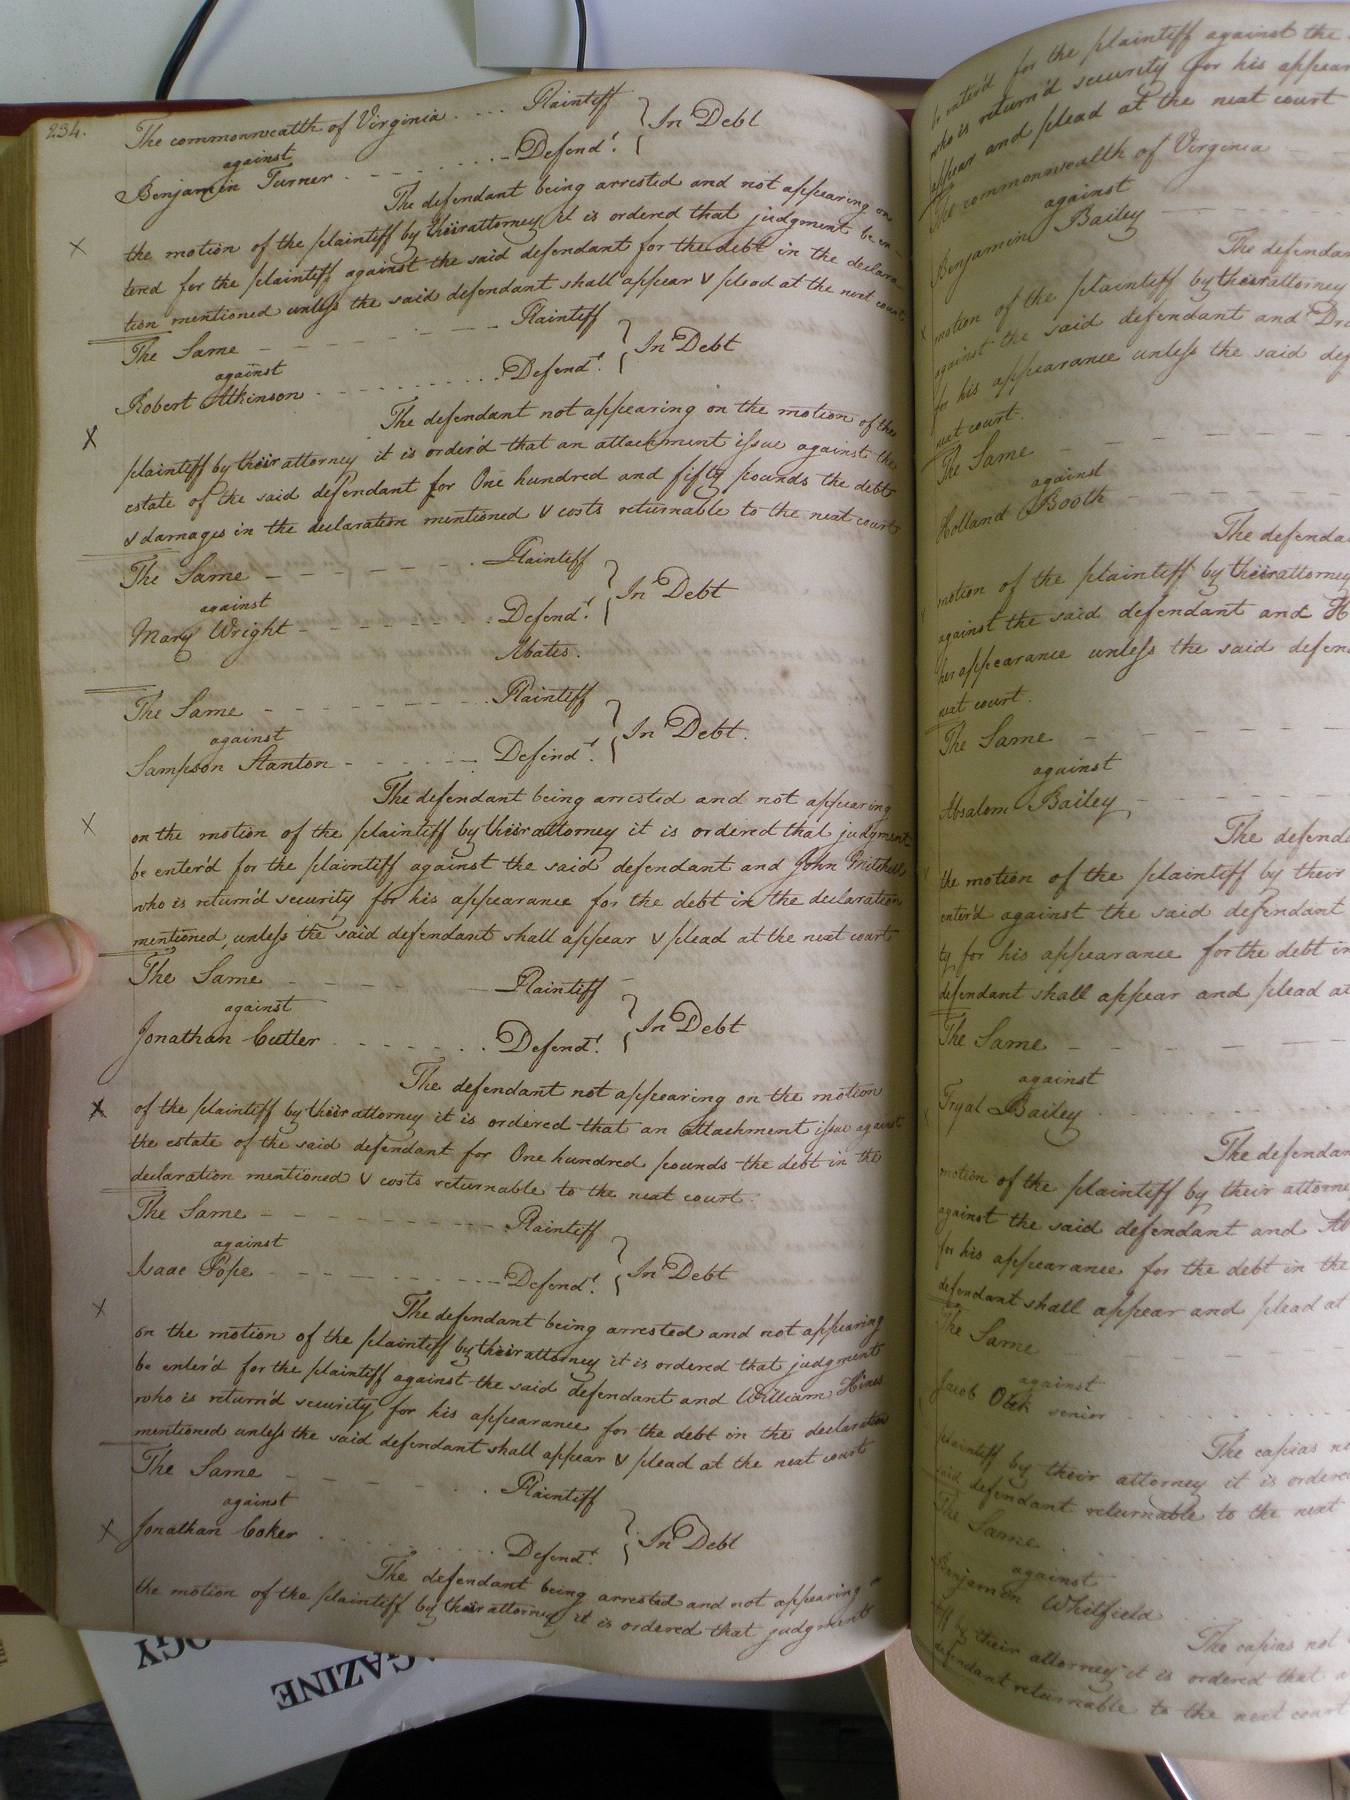 234.
The commonwealth of Virginia .... Plaintiff
against
In Debt
Benjamin Turner - - - - - - Defend.t
The defendant being arrested and not appearing on
the motion of the plaintiff by their attorney it is ordered that judgment be en-
tered for the plaintiff against the said defendant for the debt in the declara-
tion mentioned unless the said defendant shall appear & plead at the next court
The Same - - - - Plaintiff
against
In Debt
Robert Atkinson . - - - - - . Defend.t
The defendant not appearing on the motion of the
plaintiff by their attorney it is order'd that an attachment issue against the
estate of the said defendant for One hundred and fifty pounds the debt
& damages in the declaration mentioned & costs returnable to the next court
The Same - - - - - - . Plaintiff
against
In Debt
Mary Wright - - - - - - : Defend.t
Abates.
The Same - - - - - - - Plaintiff
against
In Debt.
Sampson Stanton - - - - - - Defend.t
The defendant being arrested and not appearing
on the motion of the plaintiff by their attorney it is ordered that judgment
be enter'd for the plaintiff against the said defendant and John Pritchell
who is return'd security for his appearance for the debt in the declaration
mentioned, unless the said defendant shall appear & plead at the next court
The Same - - - - - Plaintiff
against
In Debt
Jonathan Cutler . - - - - . . Defend.t
The defendant not appearing on the motion
of the plaintiff by their attorney it is ordered that an attachment issue against
the estate of the said defendant for One hundred pounds the debt in the
declaration mentioned & costs returnable to the next court.
The Same - - - - - - - - Plaintiff
against
In Debt
Isaac Pope - - - - - - - - Defend.t
The defendant being arrested and not appearing
on the motion of the plaintiff by their attorney it is ordered that judgment
be enter'd for the plaintiff against the said defendant and William Hines
who is return'd security for his appearance for the debt in the declaration
mentioned unless the said defendant shall appear & plead at the next court
The Same - - - - - . Plaintiff
against
In Debt
Jonathan Coker . . . . . . Defend.t
The defendant being arrested and not appearing on
the motion of the plaintiff by their attorney it is ordered that judgment
be enter'd for the plaintiff against the
who is return'd security for his appear
appear and plead at the next court
The commonwealth of Virginia - -
against
Benjamin Bailey - - - -
The defendan
motion of the plaintiff by their attorney
against the said defendant and
for his appearance unless the said def
next court.
The Same - - - - -
against
Holland Booth - - - -
The defenda
motion of the plaintiff by their attorney
against the said defendant and
her appearance unless the said defen
next court.
The Same - - - -
against
Absalom Bailey - - - -
The defend
the motion of the plaintiff by their
enter'd against the said defendant
ty for his appearance for the debt in
defendant shall appear and plead at
The Same - - - -
against
Tryal Bailey . . . .
The defendan
motion of the plaintiff by their attorne
against the said defendant and
for his appearance for the debt in the
defendant shall appear and plead at
The Same - - -
against
Jacob senior . . . .
The capias no
plaintiff by their attorney it is ordere
said defendant returnable to the next
The Same . . .
against
Benjamin Whitfield . . .
The capias not
tiff by their attorney it is ordered that a
defendant returnable to the next court
OGY
GAZINE